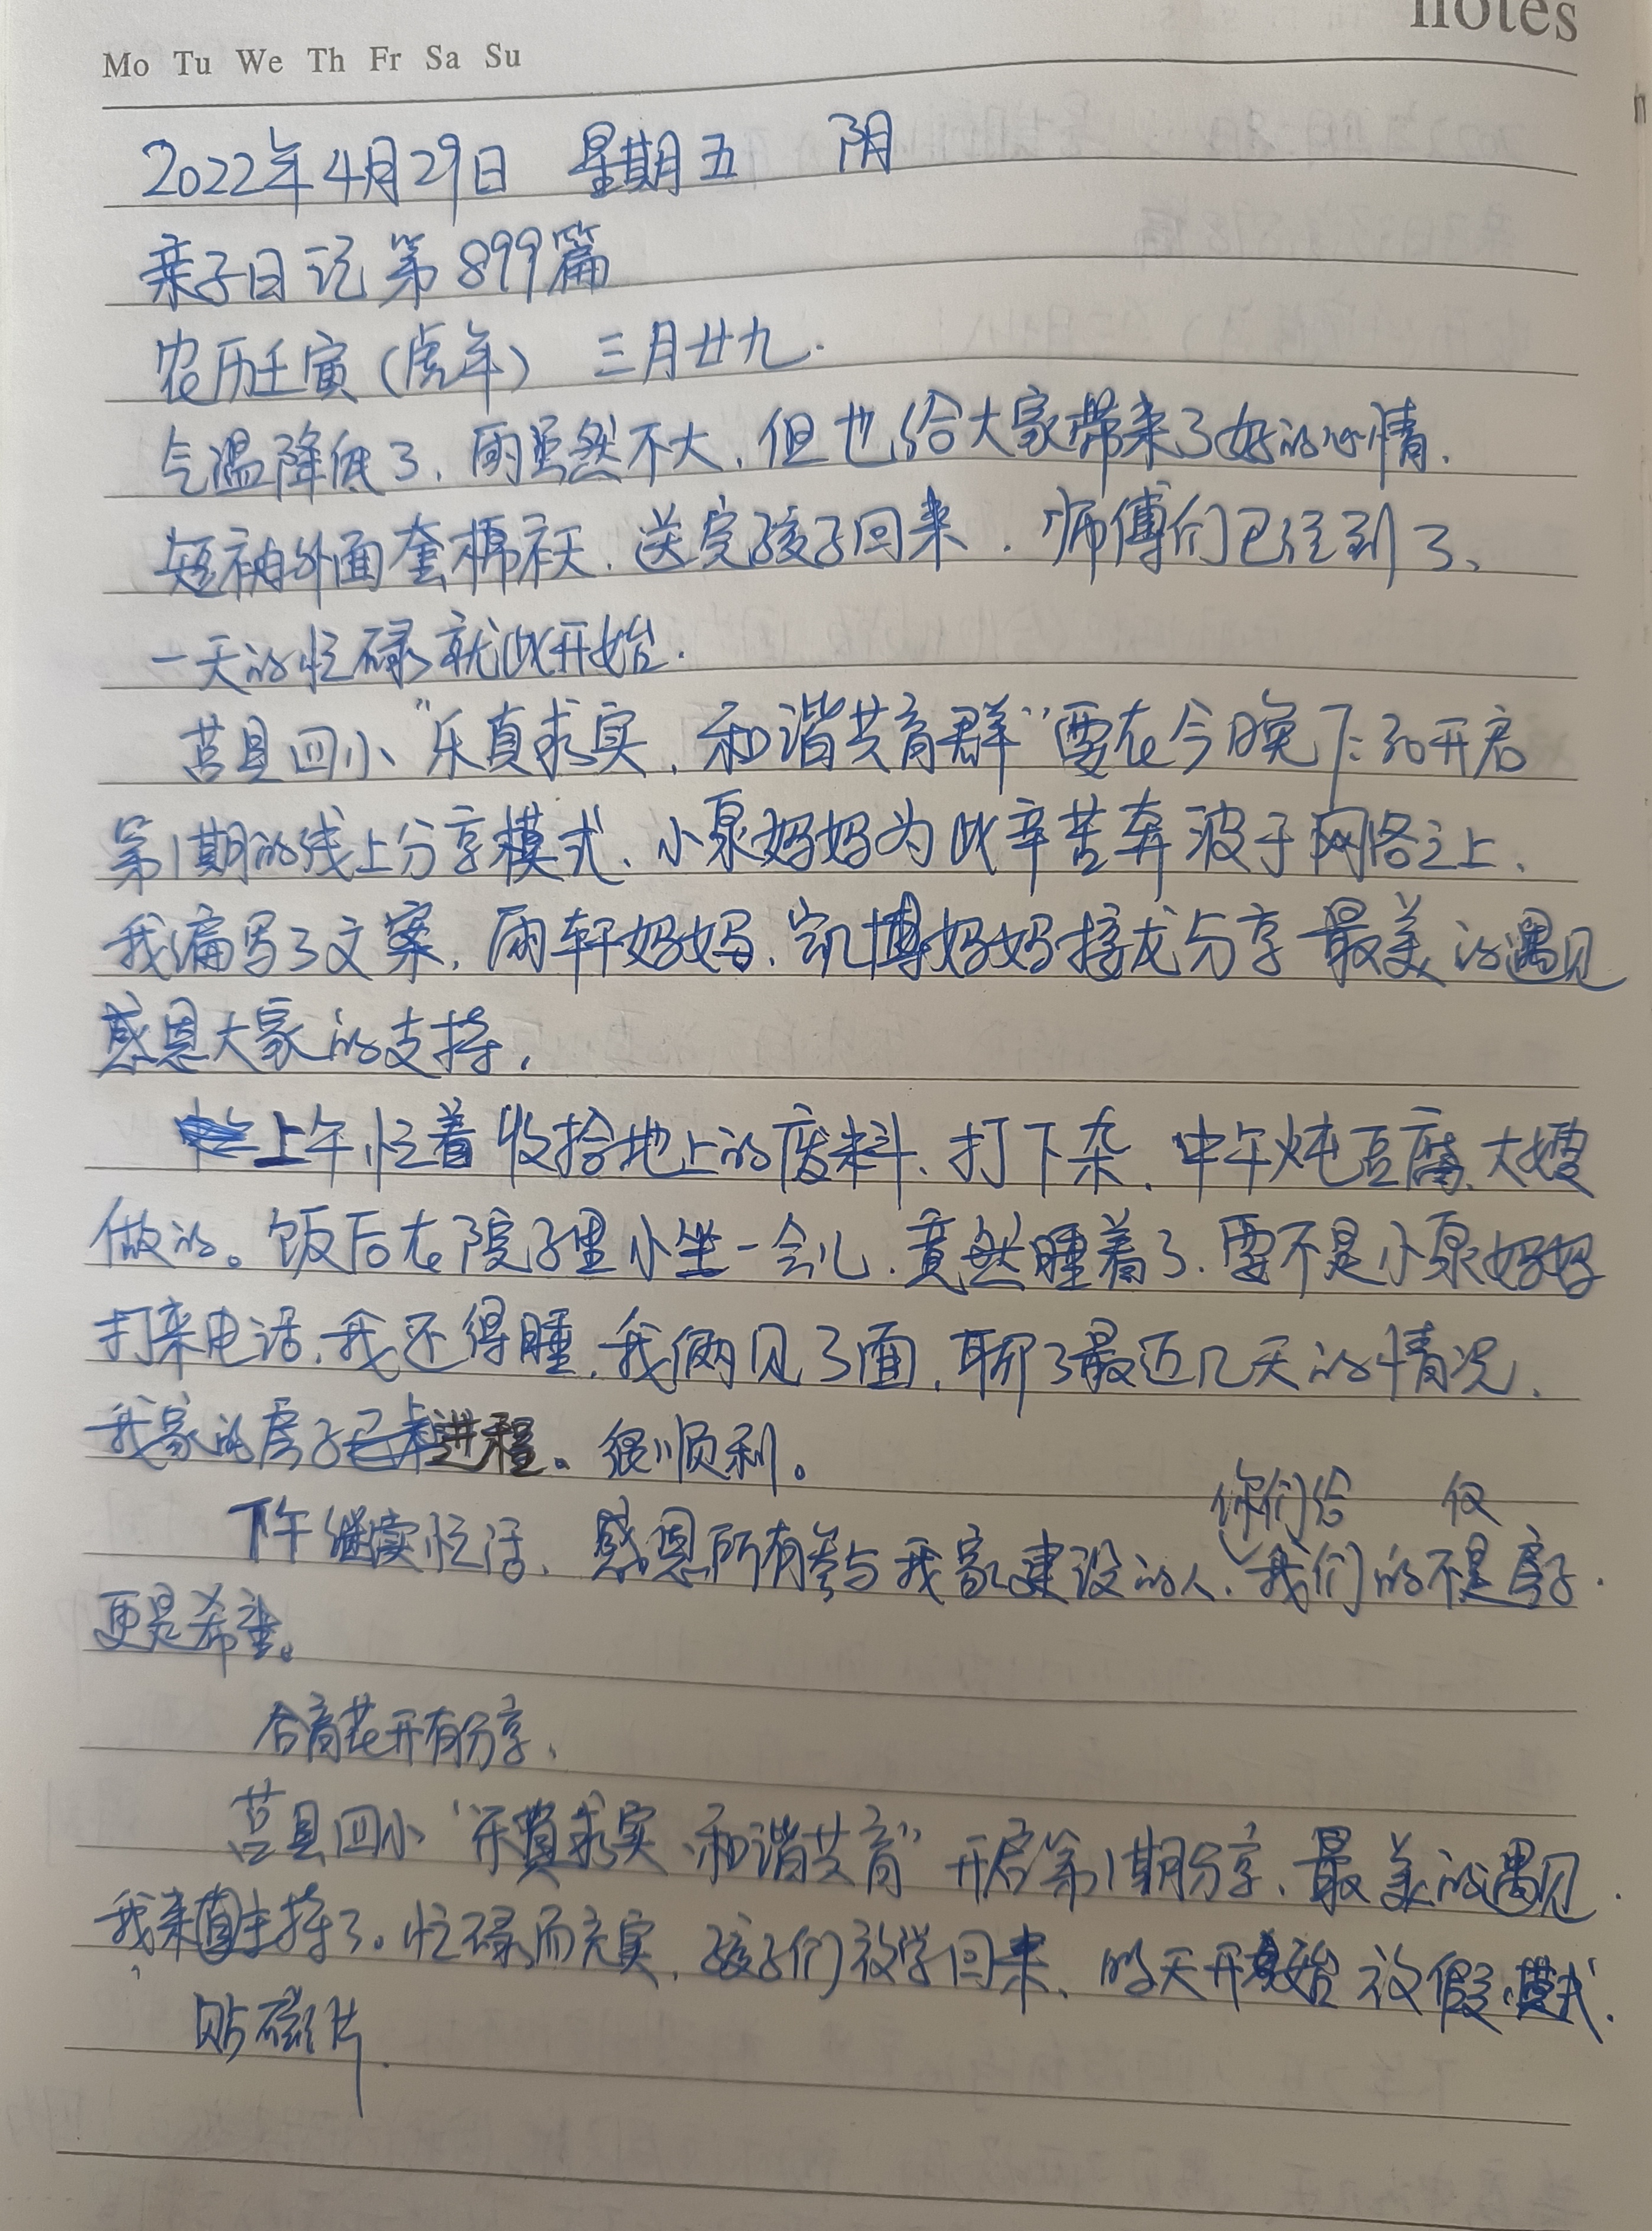 notes
Mo Tu We Th Fr Sa Su
2022年4月29日 星期五 阴
亲子日记第899篇
农历壬寅(虎年) 三月廿九.
气温降低了,雨虽然不大,但也给大家带来了好的心情.
短袖外面套棉袄.送完孩子回来.师傅们已经到了、
一天的忙碌就此开始.
莒县四小"乐真求实,和谐共育群"要在今晚7:30开启
第1期的线上分享模式、小泉妈妈为此辛苦奔波于网络之上、
我编写了文案,雨轩妈妈、凯博妈妈接龙分享最美的遇见
感恩大家的支持,
上午忙着收拾地上的废料、打下杂.中午炖豆腐、大嫂
做的。饭后在院子里小坐一会儿.竟然睡着了.要不是小泉妈妈
打来电话,我还得睡.我俩见了面,聊了最近几天的情况.
我家的房子进程。很顺利。
下午继续忙活、感恩所有参与我家建设的人、你们给我们的不仅是房子.
更是希望。
合育花开有分享、
莒县四小"乐真求实、和谐共育"开启第1期分享、最美的遇见.
我来主持了。忙碌而充实,孩子们放学回来、明天开始放假模式.
贴磁片.